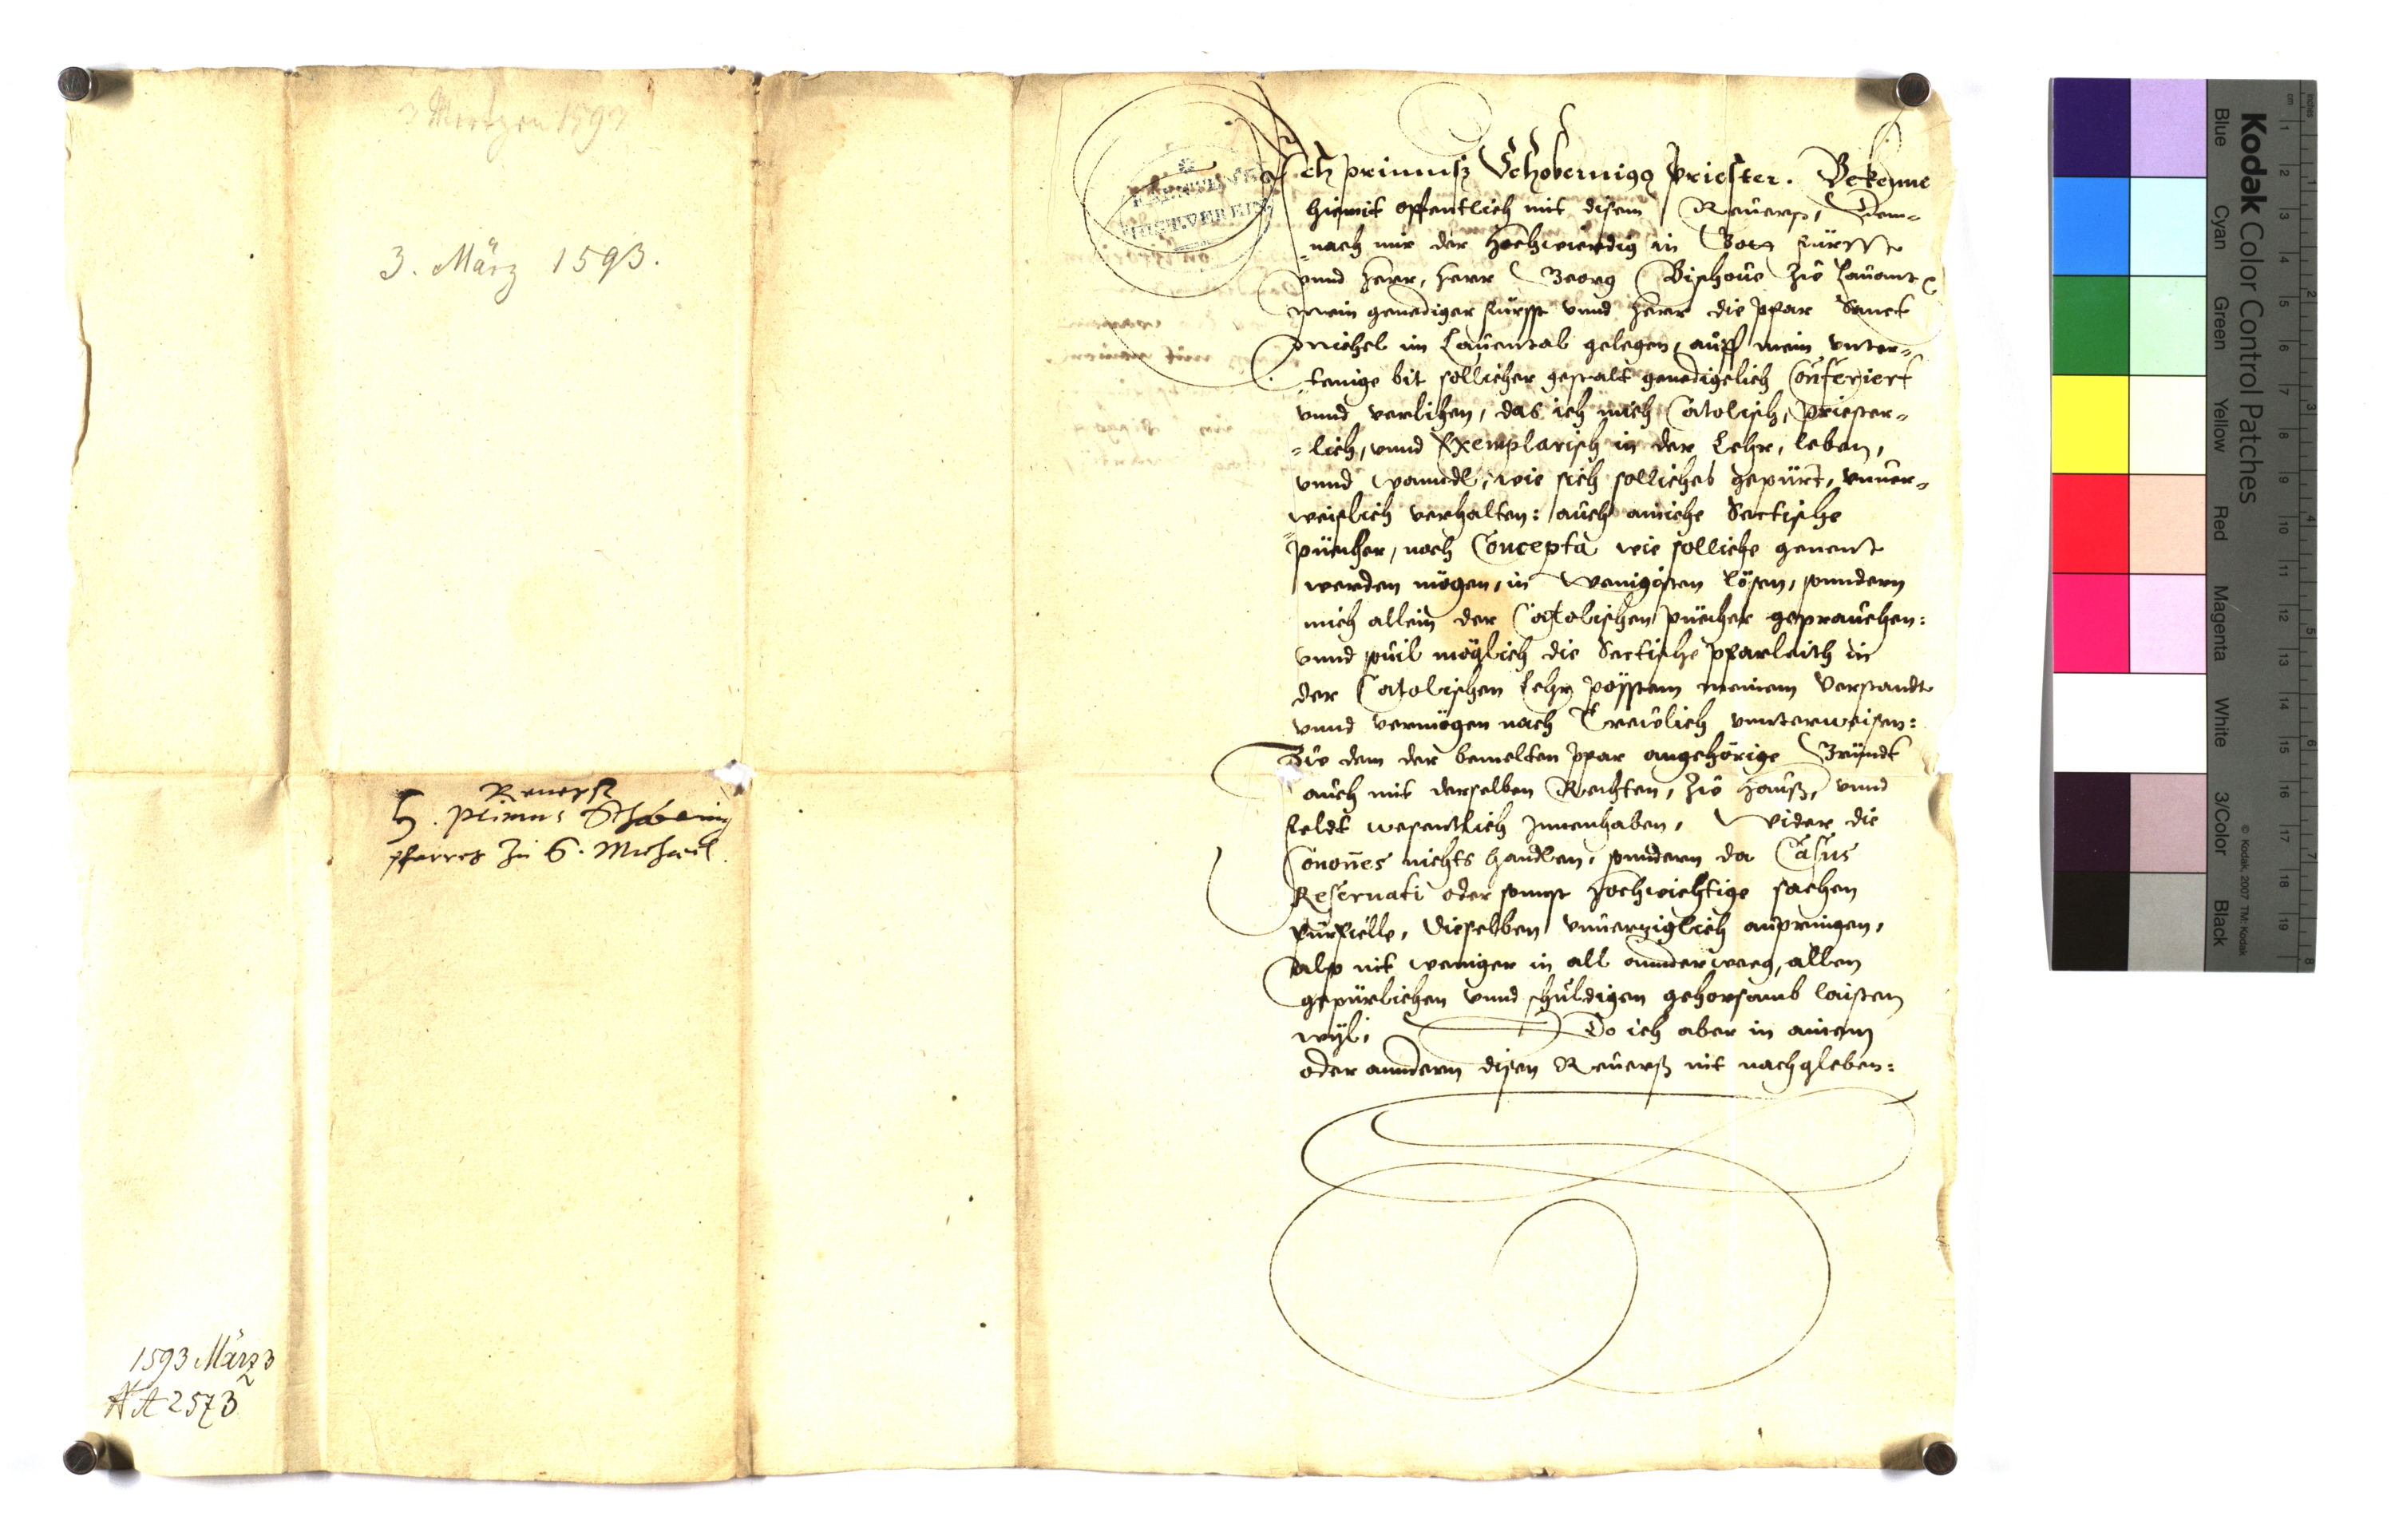 3 Mertzen 1593
3. März 1593.
Reuerß
H. Primus Schobernig
pfarrer zu S. Michael.
1593 März 3
A 2573
KAERNTEN
GESCH.VEREIN
Ich Primus Schobernigg Priester. Bekenne
hiemit offentlich mit disem Reuerß, Dem-
nach mir der Hochwürdig in Gott Fürsst
vnnd Herr, Herr Georg Bischoue zu Lauant
mein genediger Fürsst vnnd Herr die Pfar Sanct
Michel im Lauental gelegen, auff mein vnter-
tenige bit sollicher gestalt genedigelich Conferiert
vnnd verlihen, das ich mich Catolisch, Priester-
-lich, vnnd Exemplarisch in der Lehr, leben,
vnnd wanndl, wie sich solliches gepürt, vnuer-
weislich verhalten: auch ainiche Sectische
püecher, noch Concepta wie solliche genent
werden mögen, in wenigisten lösen, sunndern
mich allein der Catolischen püecher geprauchen:
vnnd souil möglich die Sectische Pfarleith in
der Catolischen Lehr pösstem meinem Verstandt
vnnd vermögen nach Treulich vnnterweisen:
Zue dem der bemelten Pfar angehörige Gründt
auch mit derselben Rechten, zue Hauß, vnnd
Feldt wesentlich Innenhaben, Wider die
Canones nichts handlen, sunndern da Casus
Reseruati oder sunnst hochwichtige sachen
fürfielle, Dieselben vnuerziglich anpringen,
also nit weniger in all annderweeg, allen
gepürlichen vnnd schuldigen gehorsamb laisten
wyl. Do ich aber in ainem
oder anndern disen Reuerß nit nachgleben:
Kodak Color Control Patches
Blue Cyan Green Yellow Red Magenta White 3/Color Black
© Kodak, 2007 TM: Kodak
inches 1 2 3 4 5 6 7 8
cm 1 2 3 4 5 6 7 8 9 10 11 12 13 14 15 16 17 18 19